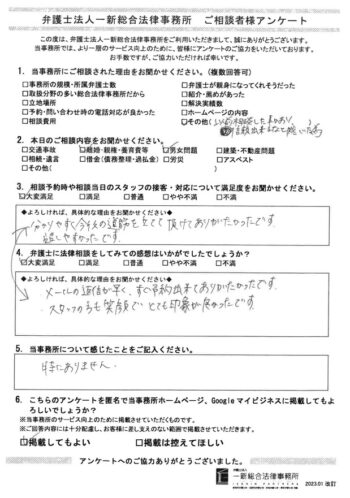 弁護士法人一新総合法律事務所　ご相談者様アンケート
この度は、弁護士法人一新総合法律事務所をご利用いただきまして、誠にありがとうございます。
当事務所では、より一層のサービス向上のために、皆様にアンケートのご協力をいただいております。
お手数ですが、ご協力いただければ幸いです。
1．当事務所にご相談された理由をお聞かせください。（複数回答可）
□事務所の規模・所属弁護士数　□弁護士が親身になってくれそうだった
□取扱分野の多い総合法律事務所だから　□紹介・薦めがあった
□立地場所　□解決実績数
□予約・問い合わせ時の電話対応が良かった　□ホームページの内容
□相談費用　□その他(
2．本日のご相談内容をお聞かせください。
□交通事故　□離婚・親権・養育費等　☑男女問題　□建築・不動産問題
□相続・遺言　□借金（債務整理・過払金）　□労災　□アスベスト
□その他(　)
3．相談予約時や相談当日のスタッフの接客・対応について満足度をお聞かせください。
☑大変満足　□満足　□普通　□やや不満　□不満
◆よろしければ、具体的な理由をお聞かせください◆
分かりやすく今後の道筋を立てて頂けてありがたかったです。
話しやすかったです。
4．弁護士に法律相談をしてみての感想はいかがでしたでしょうか？
☑大変満足　□満足　□普通　□やや不満　□不満
◆よろしければ、具体的な理由をお聞かせください◆
メールの返信が早く、すぐ予約出来てありがたかったです。
スタッフの方も笑顔で とても印象が良かったです。
5．当事務所について感じたことをご記入ください。
特にありません。
6．こちらのアンケートを匿名で当事務所ホームページ、Googleマイビジネスに掲載してもよ
ろしいでしょうか？
※当事務所のサービス向上のために掲載させていただくものです。
※ご回答内容には十分配慮し、お客様に差し支えのない範囲で掲載させていただきます。
☑掲載してもよい　□掲載は控えてほしい
アンケートへのご協力ありがとうございました。
弁護士法人
一新総合法律事務所
2023.01 改訂